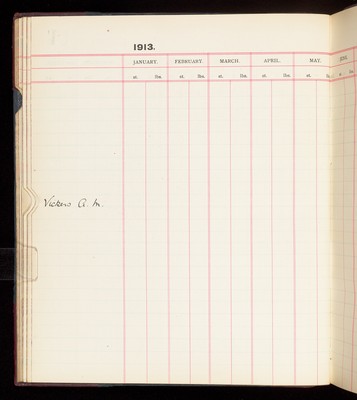 1913.
JANUARY. FEBRUARY. MARCH. APRIL. MAY. JUNE.
st. lbs. st. lbs. st. lbs. st. lbs. st. lbs. st. lbs.
Vickers A. M.